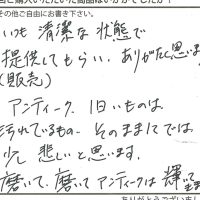 その他ご自由にお書き下さい。
いつも清潔な状態で
提供してもらい、ありがたく思います
(販売)
アンティーク、旧いものは
汚れているもの、そのままにでは
少し悲しいと思います。
磨いて、磨いてアンティークは輝って
ありがとうございまし